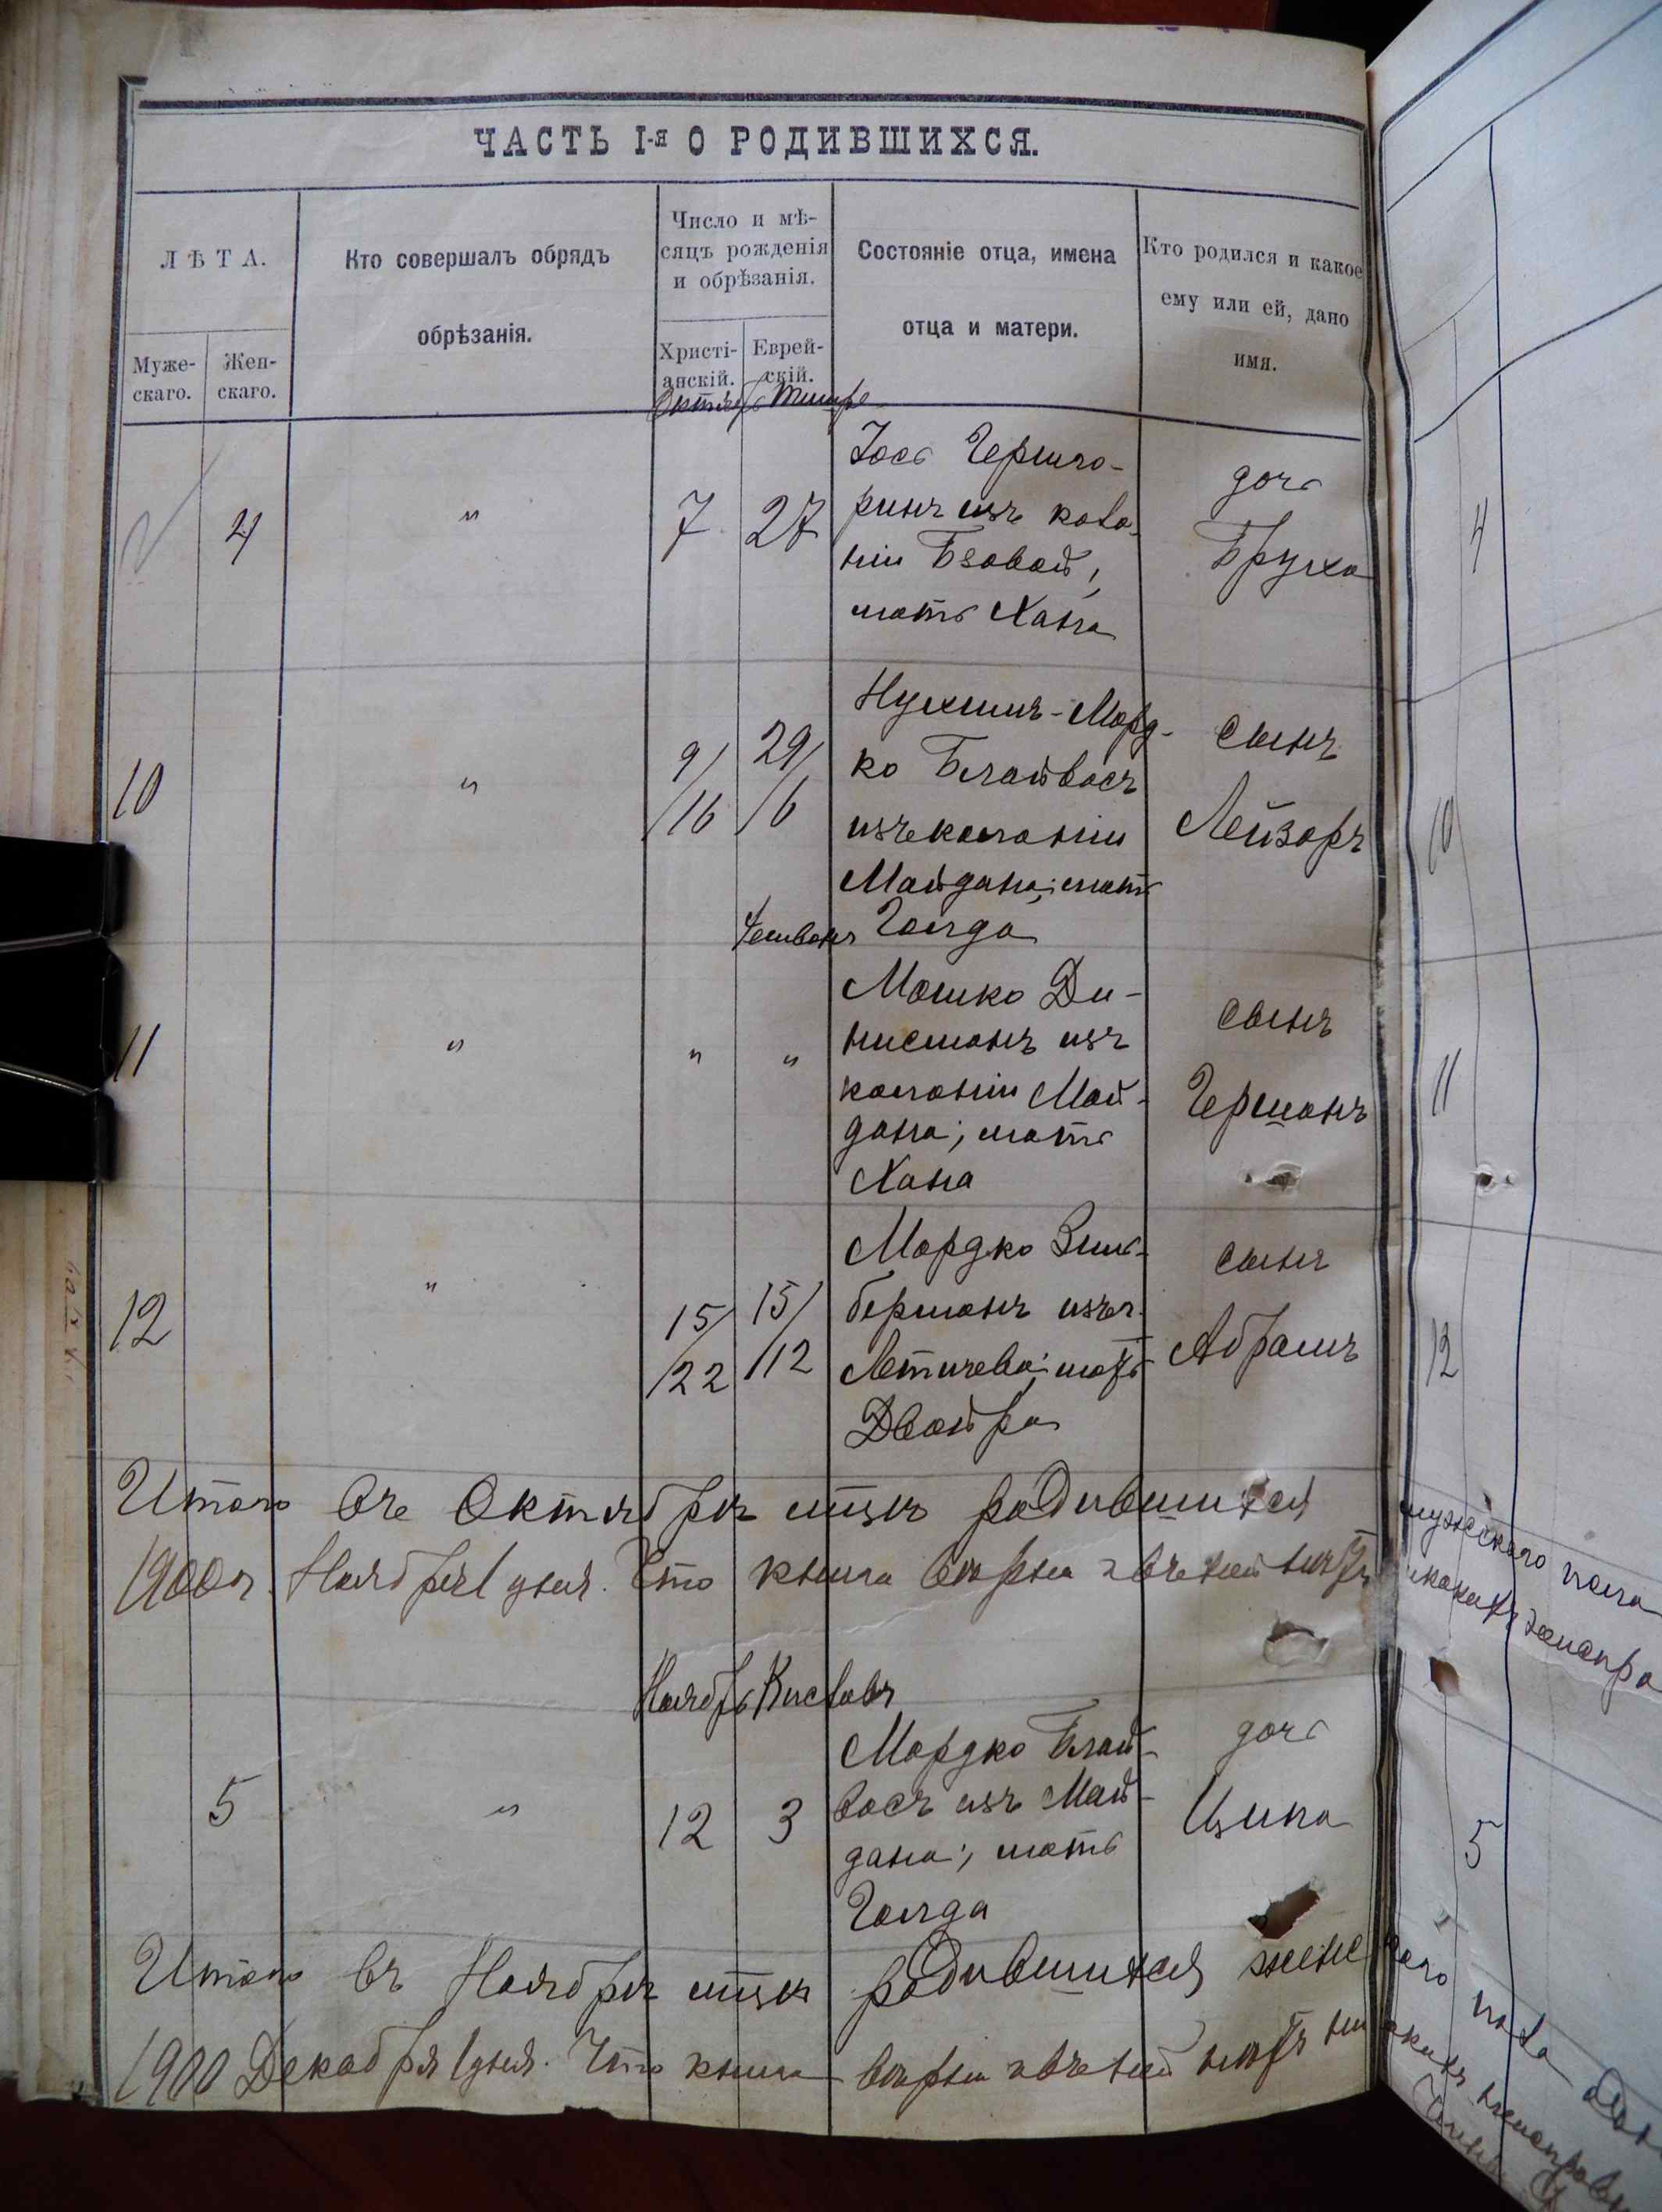 ЧАСТЬ I-я О РОДИВШИХСЯ.
ЛѢТА.
Муже-
скаго.
Жен-
скаго.
Кто совершалъ обрядъ
обрѣзанія.
Число и мѣ-
сяцъ рожденія
и обрѣзанія.
Христі-
анскій.
Еврей-
скій.
Состояніе отца, имена
отца и матери.
Кто родился и какое
ему или ей, дано
имя.
Октябрь Тишре
4
"
7
27
Іось Гершго-
ринъ изъ коло-
ніи Бзовой,
мать Хана
дочь
Бруха
4
10
"
9/
/16
29/
/6
Нухимъ-Морд-
ко Блайвасъ
изъ колоніи
Майдана; мать
Голда
сынъ
Лейзоръ
10
Хешванъ
11
"
"
"
Мошко Ди-
нисманъ изъ
колоніи Май-
дана; мать
Хана
сынъ
Германъ
11
12
"
15/
/22
15/
/12
Мордко Зиль-
берманъ изъ г.
Летичева; мать
Двойра
сынъ
Абрамъ
12
Итого въ Октябрѣ мцѣ родившихся мужескаго пола
1900 г. Ноября 1 дня. Что книга вѣрна и въ ней нѣтъ никакихъ
Ноябрь Кислевъ
5
"
12
3
Мордко Блай-
васъ изъ Май-
дана; мать
Голда
дочь
Ципа
5
Итого въ Ноябрѣ мцѣ родившихся женскаго пола
1900 Декабря 1 дня. Что книга вѣрна и въ ней нѣтъ никакихъ